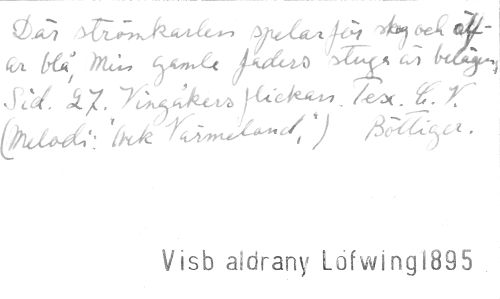 Där strömkarlen spelar för skog och älf-
ar blå, Min gamle faders stuga är belägen,
Sid. 27. Vingåkersflickan. Tex. C. V.
(Melodi: "Ack Värmeland,") Böttiger.
Visb aldrany Löfwing1895